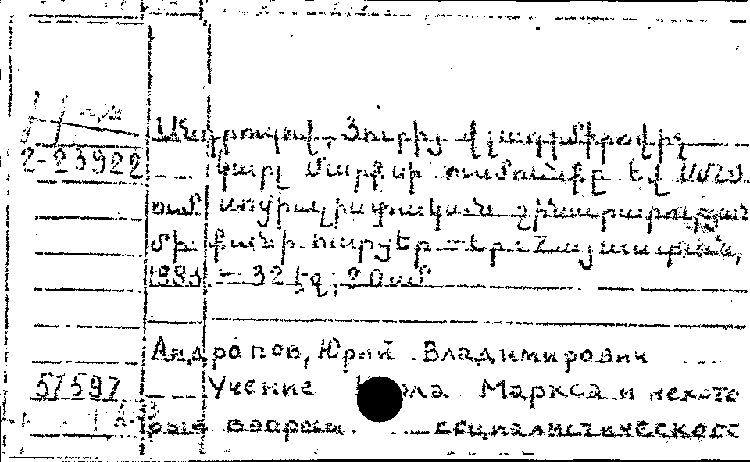 Անդրոպով, Յուրիյ Վլադիմիրովիչ
2-23922
Կարլ Մարքսի ուսմունքը և ՍՍՀՄ-
ում սոցիալիստական շինարարության
մի քանի հարցեր. – Երևան, Հայաստան,
1983. – 32 էջ; 20 սմ
Андропов, Юрий Владимирович
57597 Учение К рла Маркса и некото
рые вопросы социалистическог